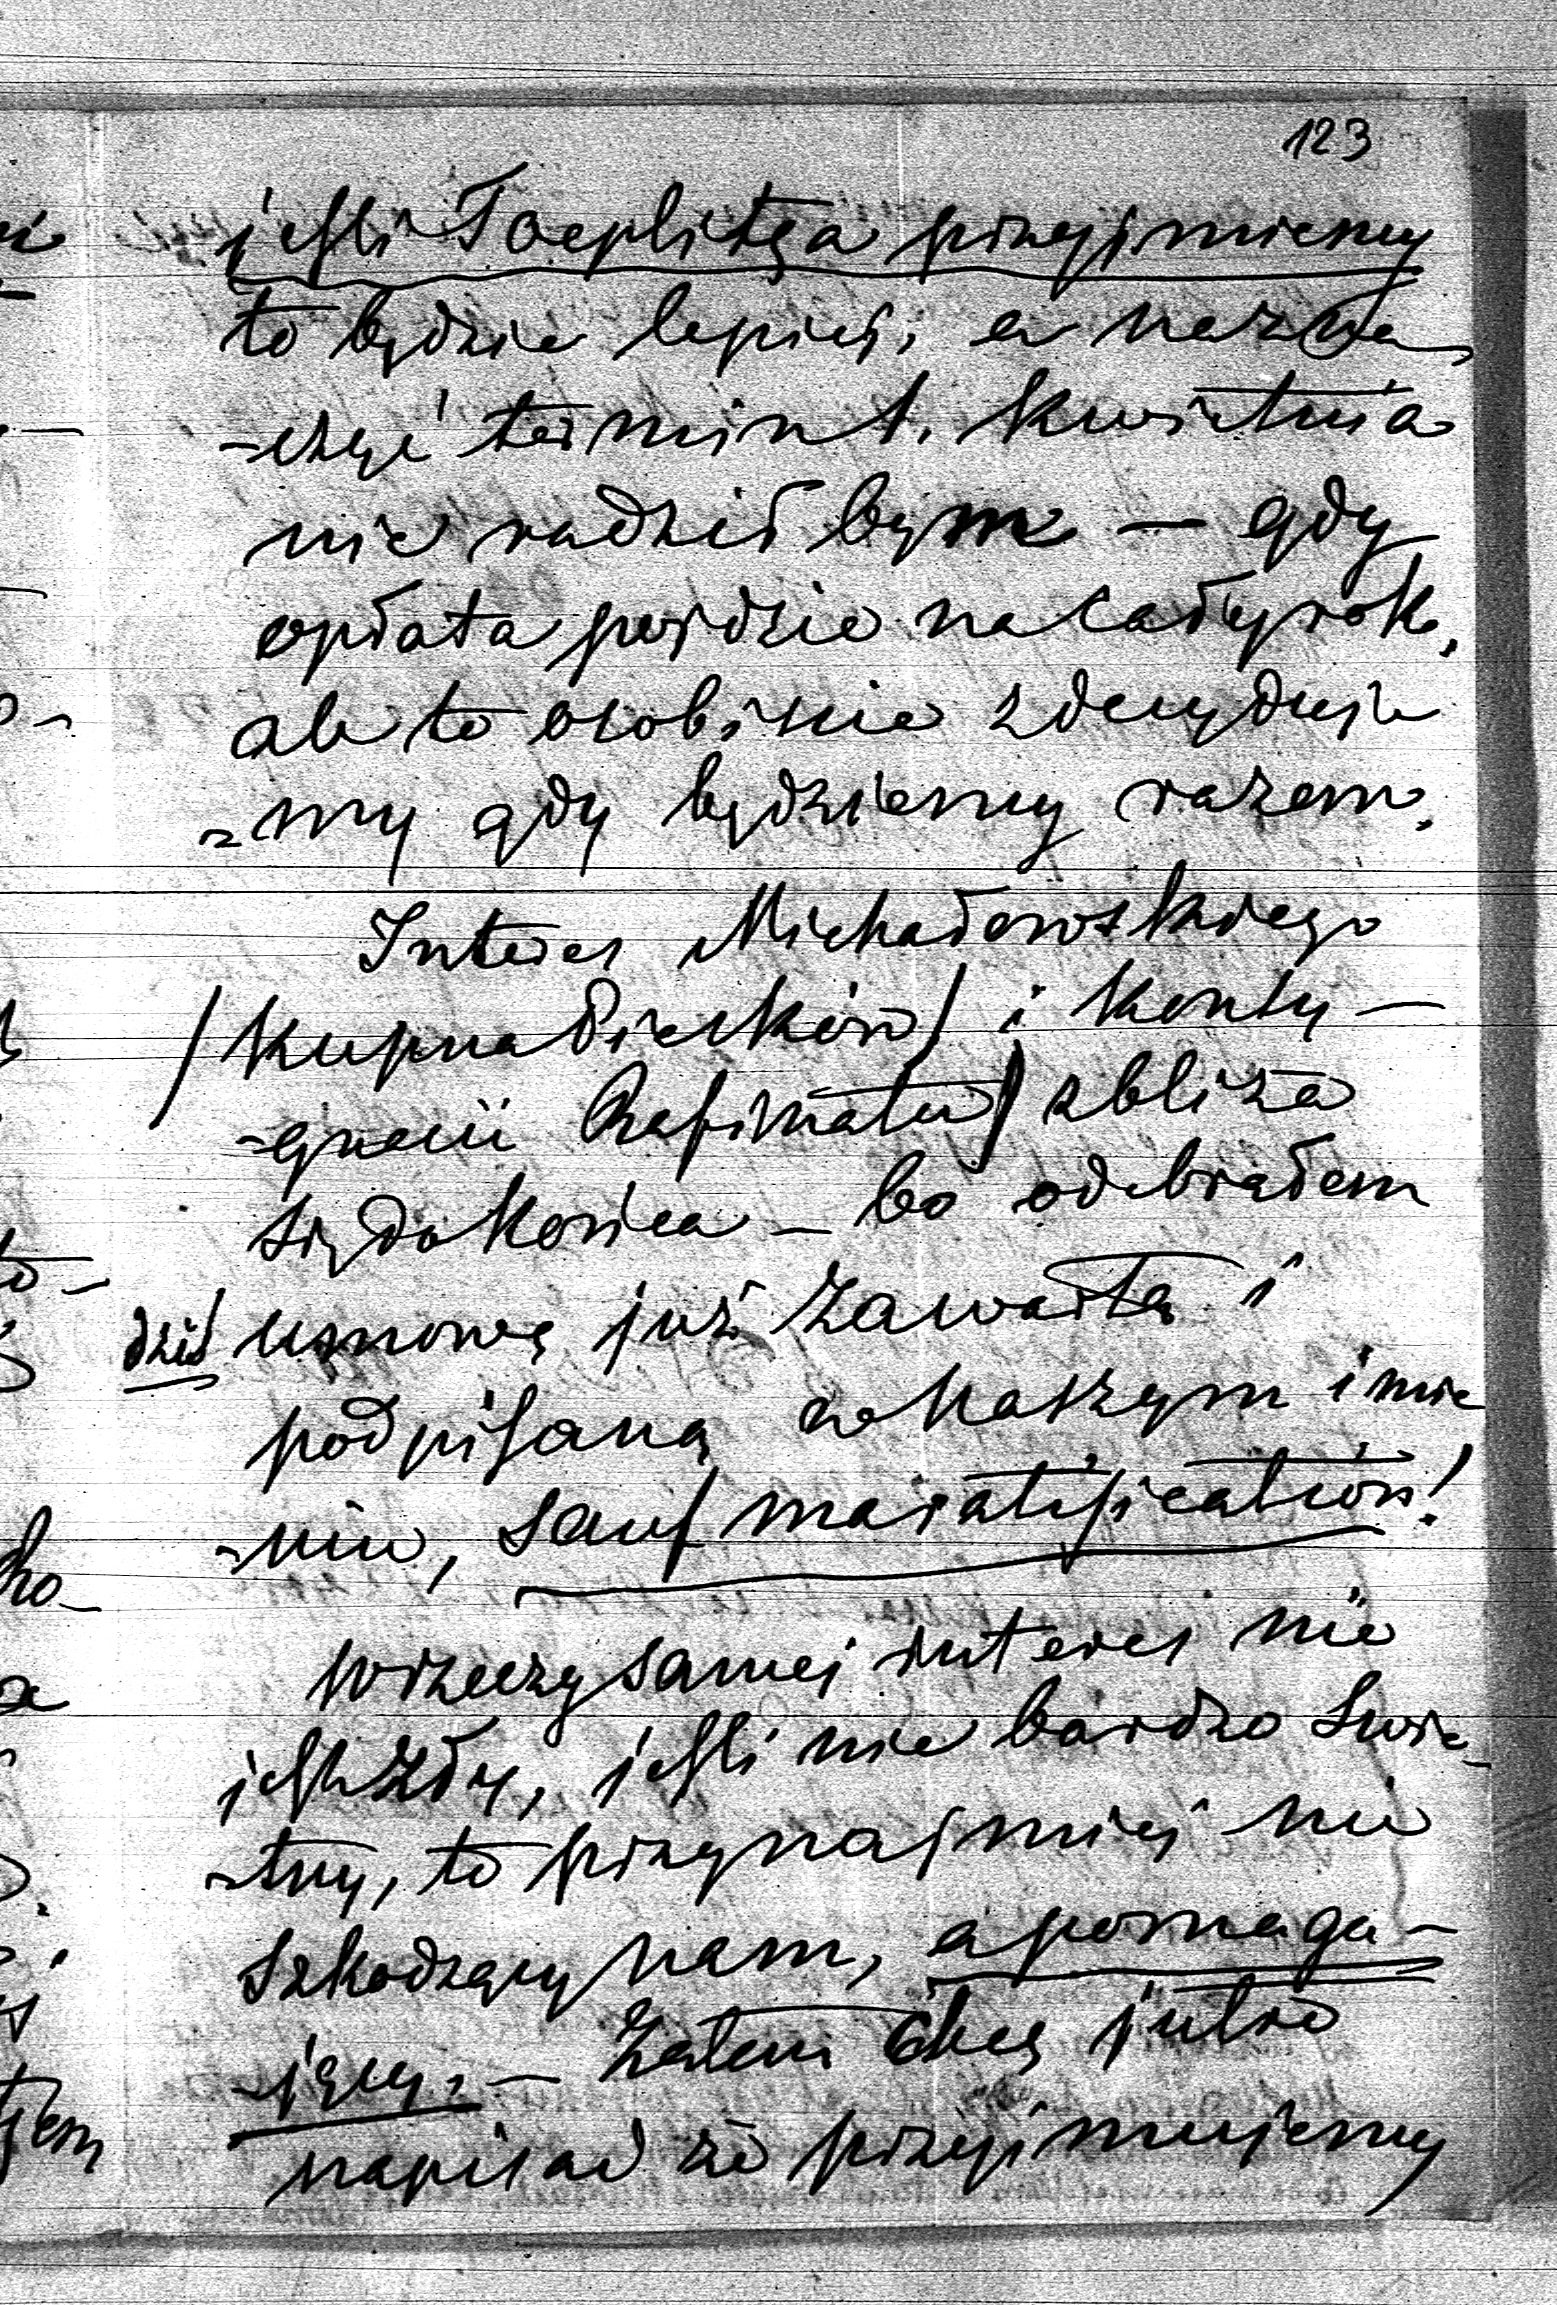 123
jeſli Toeplitza przyjmiemy
to będzie lepiej, a nazna
-czyć termin 1. Kwietnia
nie radził bym — gdy
opłata pójdzie na cały rok,
ale to osobiscie zdecyduje
-my gdy będziemy razem.
Interes Michałowskiego
/kupna Piesków/ i konsy-
-gnacii Rafinatu/ zbliża
się do końca — bo odebrałem
dziś umowę już zawartą i
podpiſaną w naszym imie
-niu, sauf ma ratification!
W rzeczy samej interes nie
jeſt zły, jeſli nie bardzo swie-
-tny, to przynajmniej nie
szkodzący nam, a pomaga-
-jący. — Zatem chcę jutro
napisać że przyjmujemy